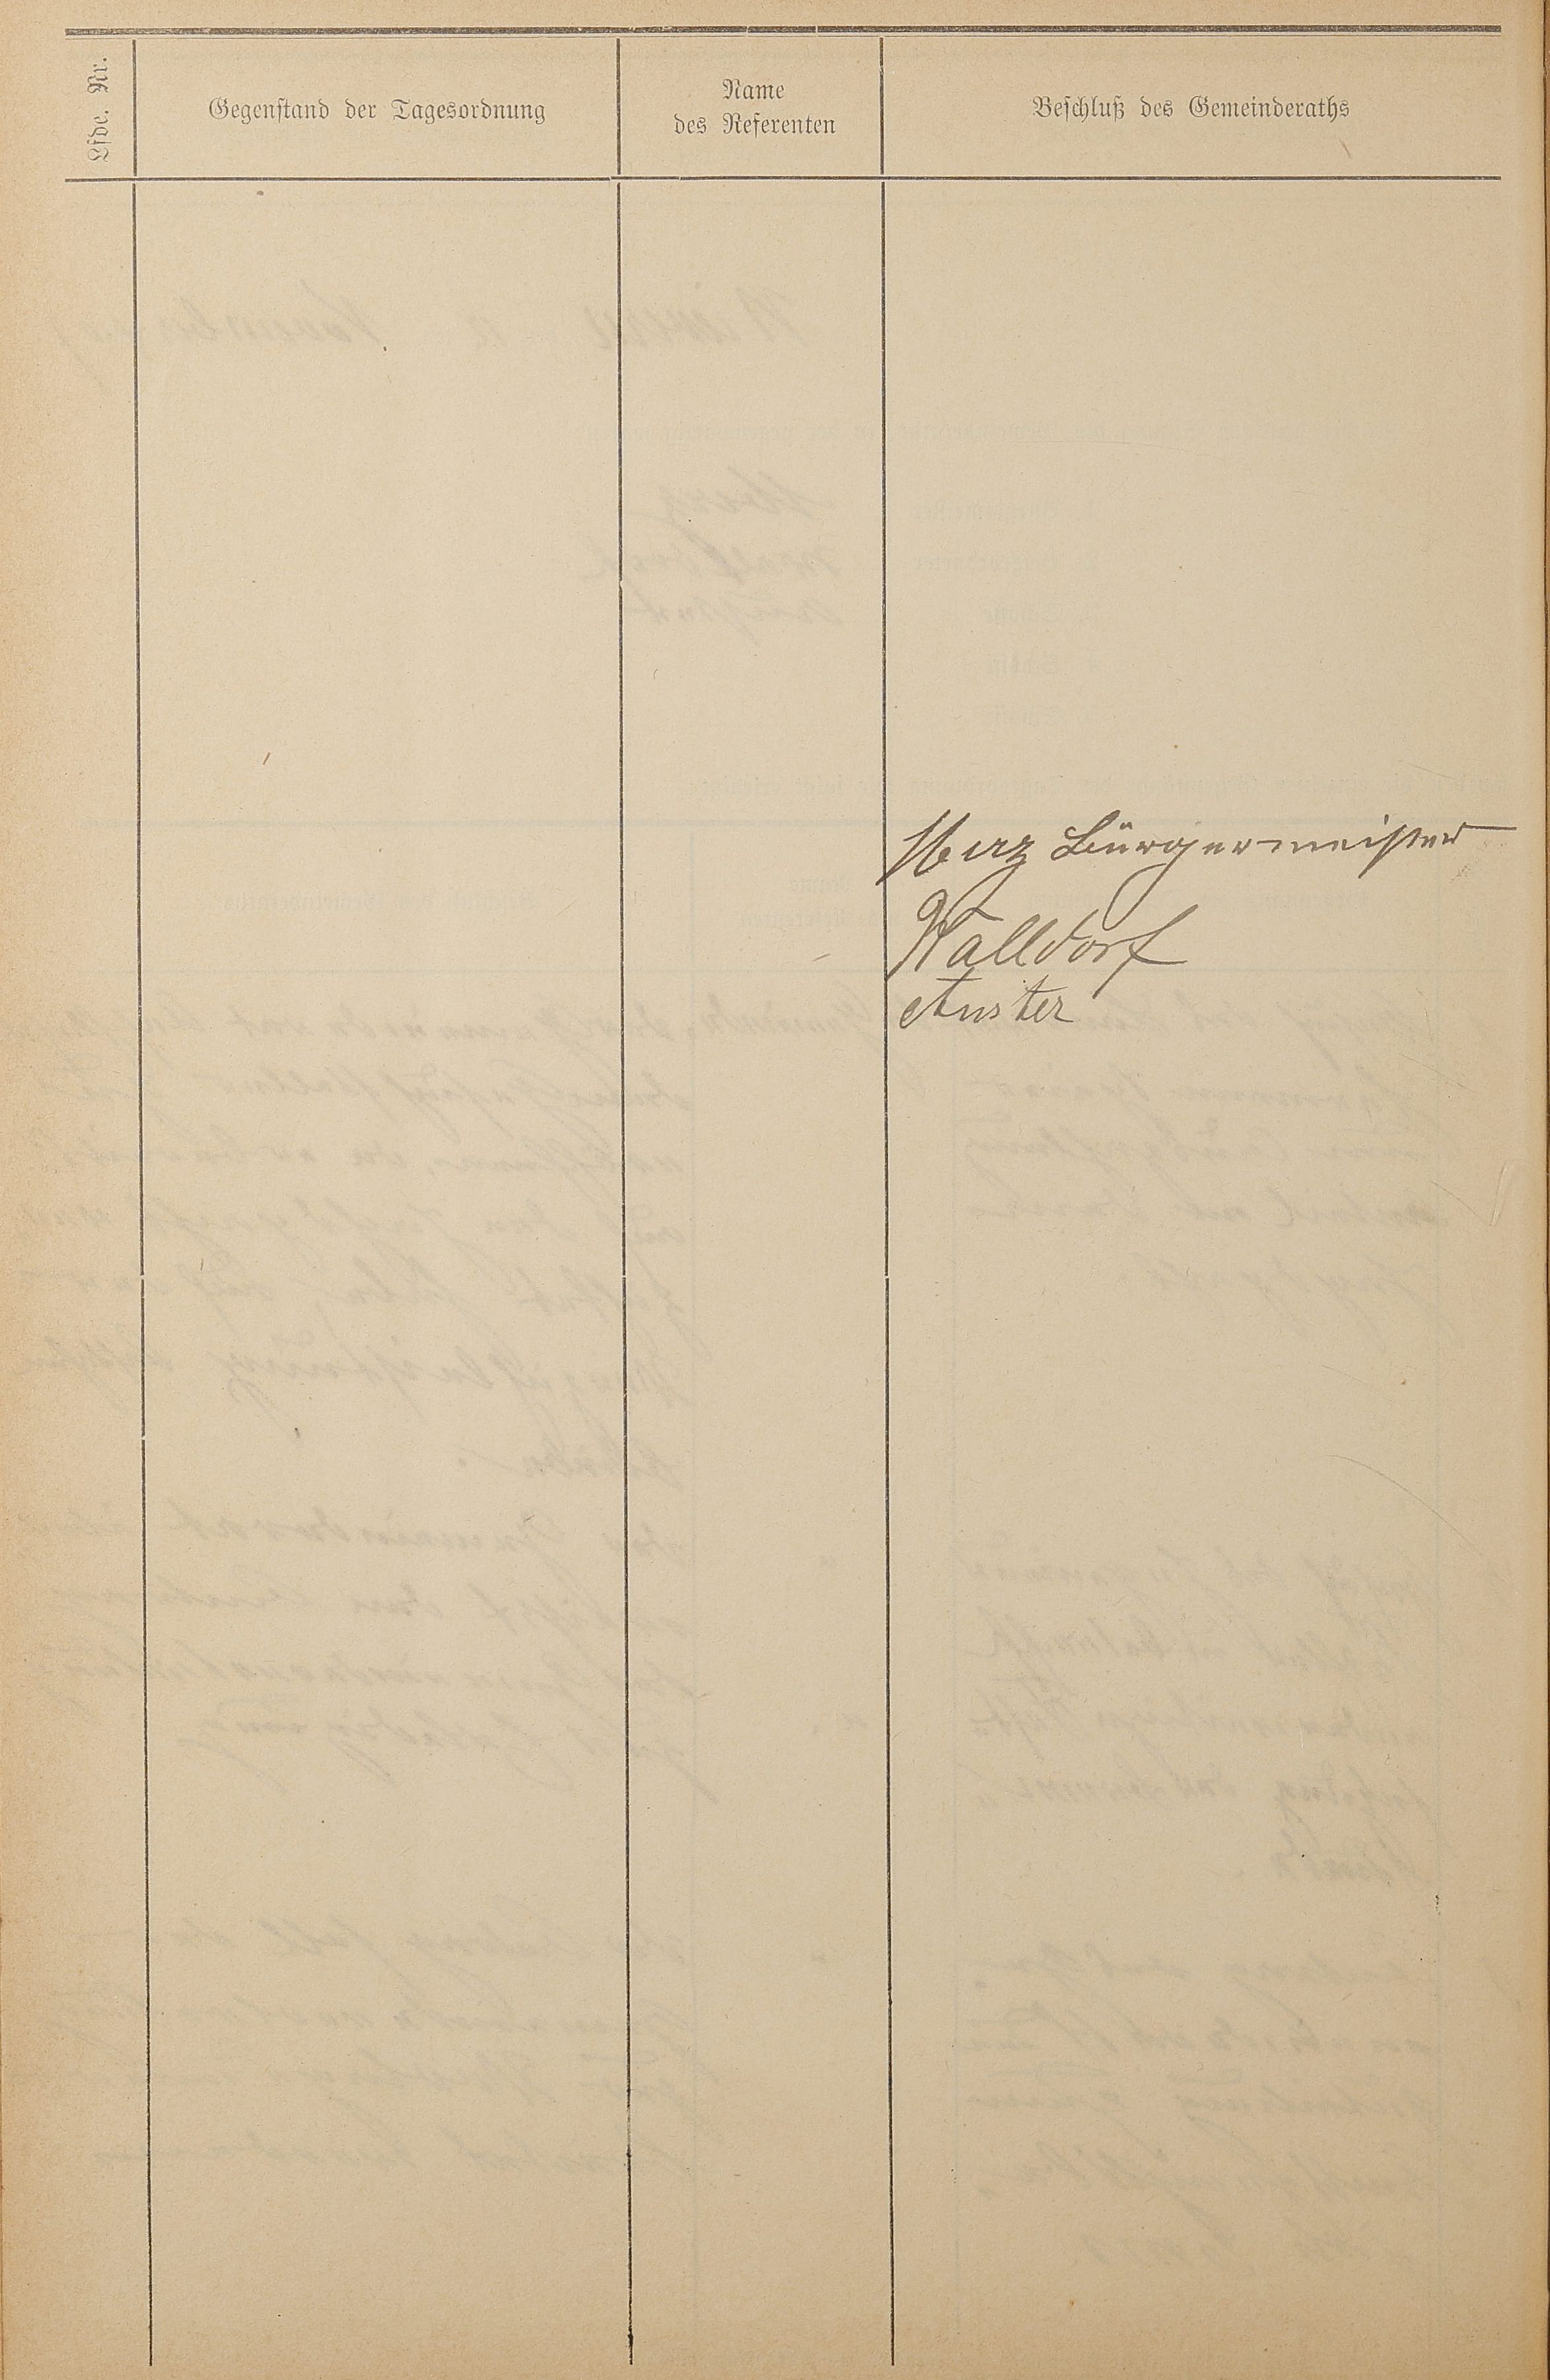 Lfde. Nr.
Gegenstand der Tagesordnung
Name
des Referenten
Beschluß des Gemeinderaths
Merz Bürgermeister
Walldorf
Anster